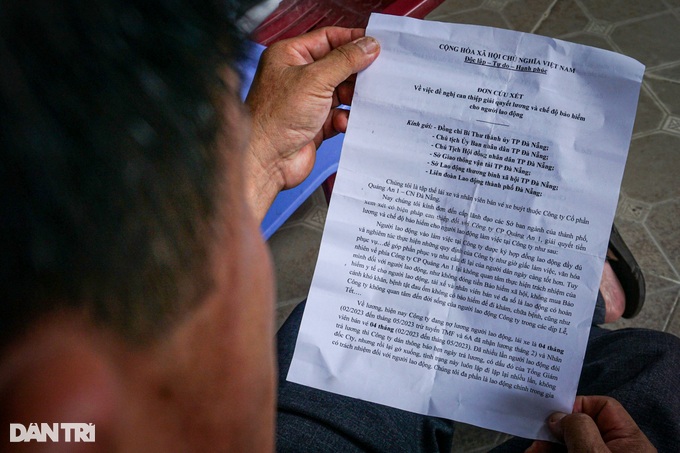 CỘNG HÒA XÃ HỘI CHỦ NGHĨA VIỆT NAM
Độc lập – Tự do – Hạnh phúc
ĐƠN CỨU XÉT
Về việc đề nghị can thiệp giải quyết lương và chế độ bảo hiểm
cho người lao động
Kính gửi: - Đồng chí Bí Thư thành ủy TP Đà Nẵng;
- Chủ tịch Ủy Ban nhân dân TP Đà Nẵng;
- Chủ Tịch Hội đồng nhân dân TP Đà Nẵng;
- Sở Giao thông vận tải TP Đà Nẵng;
- Sở Lao động thương binh xã hội TP Đà Nẵng;
- Liên đoàn Lao động thành phố Đà Nẵng;
Chúng tôi là tập thể lái xe và nhân viên bán vé xe buýt thuộc Công ty Cổ phần
Quảng An 1 – CN Đà Nẵng.
Nay chúng tôi kính đơn đến cấp lãnh đạo các Sở ban ngành của thành phố,
xem xét có biện pháp can thiệp đối với Công ty CP Quảng An 1, giải quyết tiền
lương và chế độ bảo hiểm cho người lao động làm việc tại Công ty như sau:
Người lao động vào làm việc tại Công ty được ký hợp đồng lao động đầy đủ
và nghiêm túc thực hiện những quy định của Công ty như giờ giấc làm việc, văn hóa
phục vụ…để góp phần phục vụ nhu cầu đi lại của người dân ngày càng tốt hơn. Tuy
nhiên về phía Công ty CP Quảng An 1 lại không quan tâm thực hiện trách nhiệm của
mình đối với người lao động, như không đóng tiền Bảo hiểm xã hội, không mua Bảo
hiểm y tế cho người lao động, tài xế và nhân viên bán vé đa số là lao động có hoàn
cảnh khó khăn, bệnh tật đau ốm không có bảo hiểm để đi khám, chữa bệnh, cũng như
Công ty không quan tâm đến đời sống của người lao động Công ty trong các dịp Lễ,
Tết….
Về lương, hiện nay Công ty đang nợ lương người lao động, lái xe là 04 tháng
(02/2023 đến tháng 05/2023 trừ tuyến TMF và 6A đã nhận lương tháng 2) và Nhân
viên bán vé 04 tháng (02/2023 đến tháng 05/2023). Đã nhiều lần người lao động đòi
trả lương thì Công ty dán thông báo hẹn ngày trả lương, có dấu đỏ của Tổng Giám
đốc Cty, nhưng rồi lại gỡ xuống, tình trạng này luôn lặp đi lặp lại nhiều lần, không
có trách nhiệm đối với người lao động. Chúng tôi đa phần là lao động chính trong gia
DÂN TRÍ